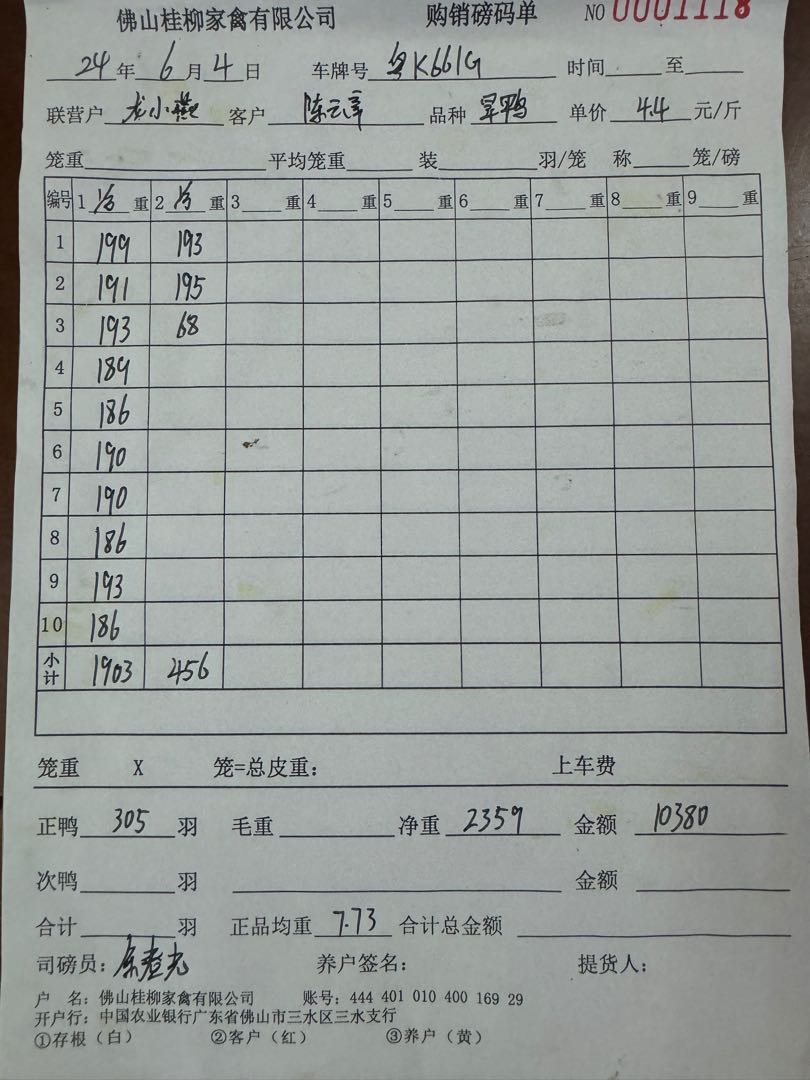 佛山桂柳家禽有限公司 购销磅码单 NO 0001118
24 年 6 月 4 日 车牌号 粤K661G 时间 至
联营户 龙小燕 客户 陈云章 品种 旱鸭 单价 4.4 元/斤
笼重 平均笼重 装 羽/笼 称 笼/磅
编号 1 重 2 重 3 重 4 重 5 重 6 重 7 重 8 重 9 重
1 199 193
2 191 195
3 193 68
4 189
5 186
6 190
7 190
8 186
9 193
10 186
小计 1903 456
笼重 X 笼=总皮重: 上车费
正鸭 305 羽 毛重 净重 2359 金额 10380
次鸭 羽 金额
合计 羽 正品均重 7.73 合计总金额
司磅员: 养户签名: 提货人:
户 名: 佛山桂柳家禽有限公司 账号: 444 401 010 400 169 29
开户行: 中国农业银行广东省佛山市三水区三水支行
①存根(白) ②客户(红) ③养户(黄)